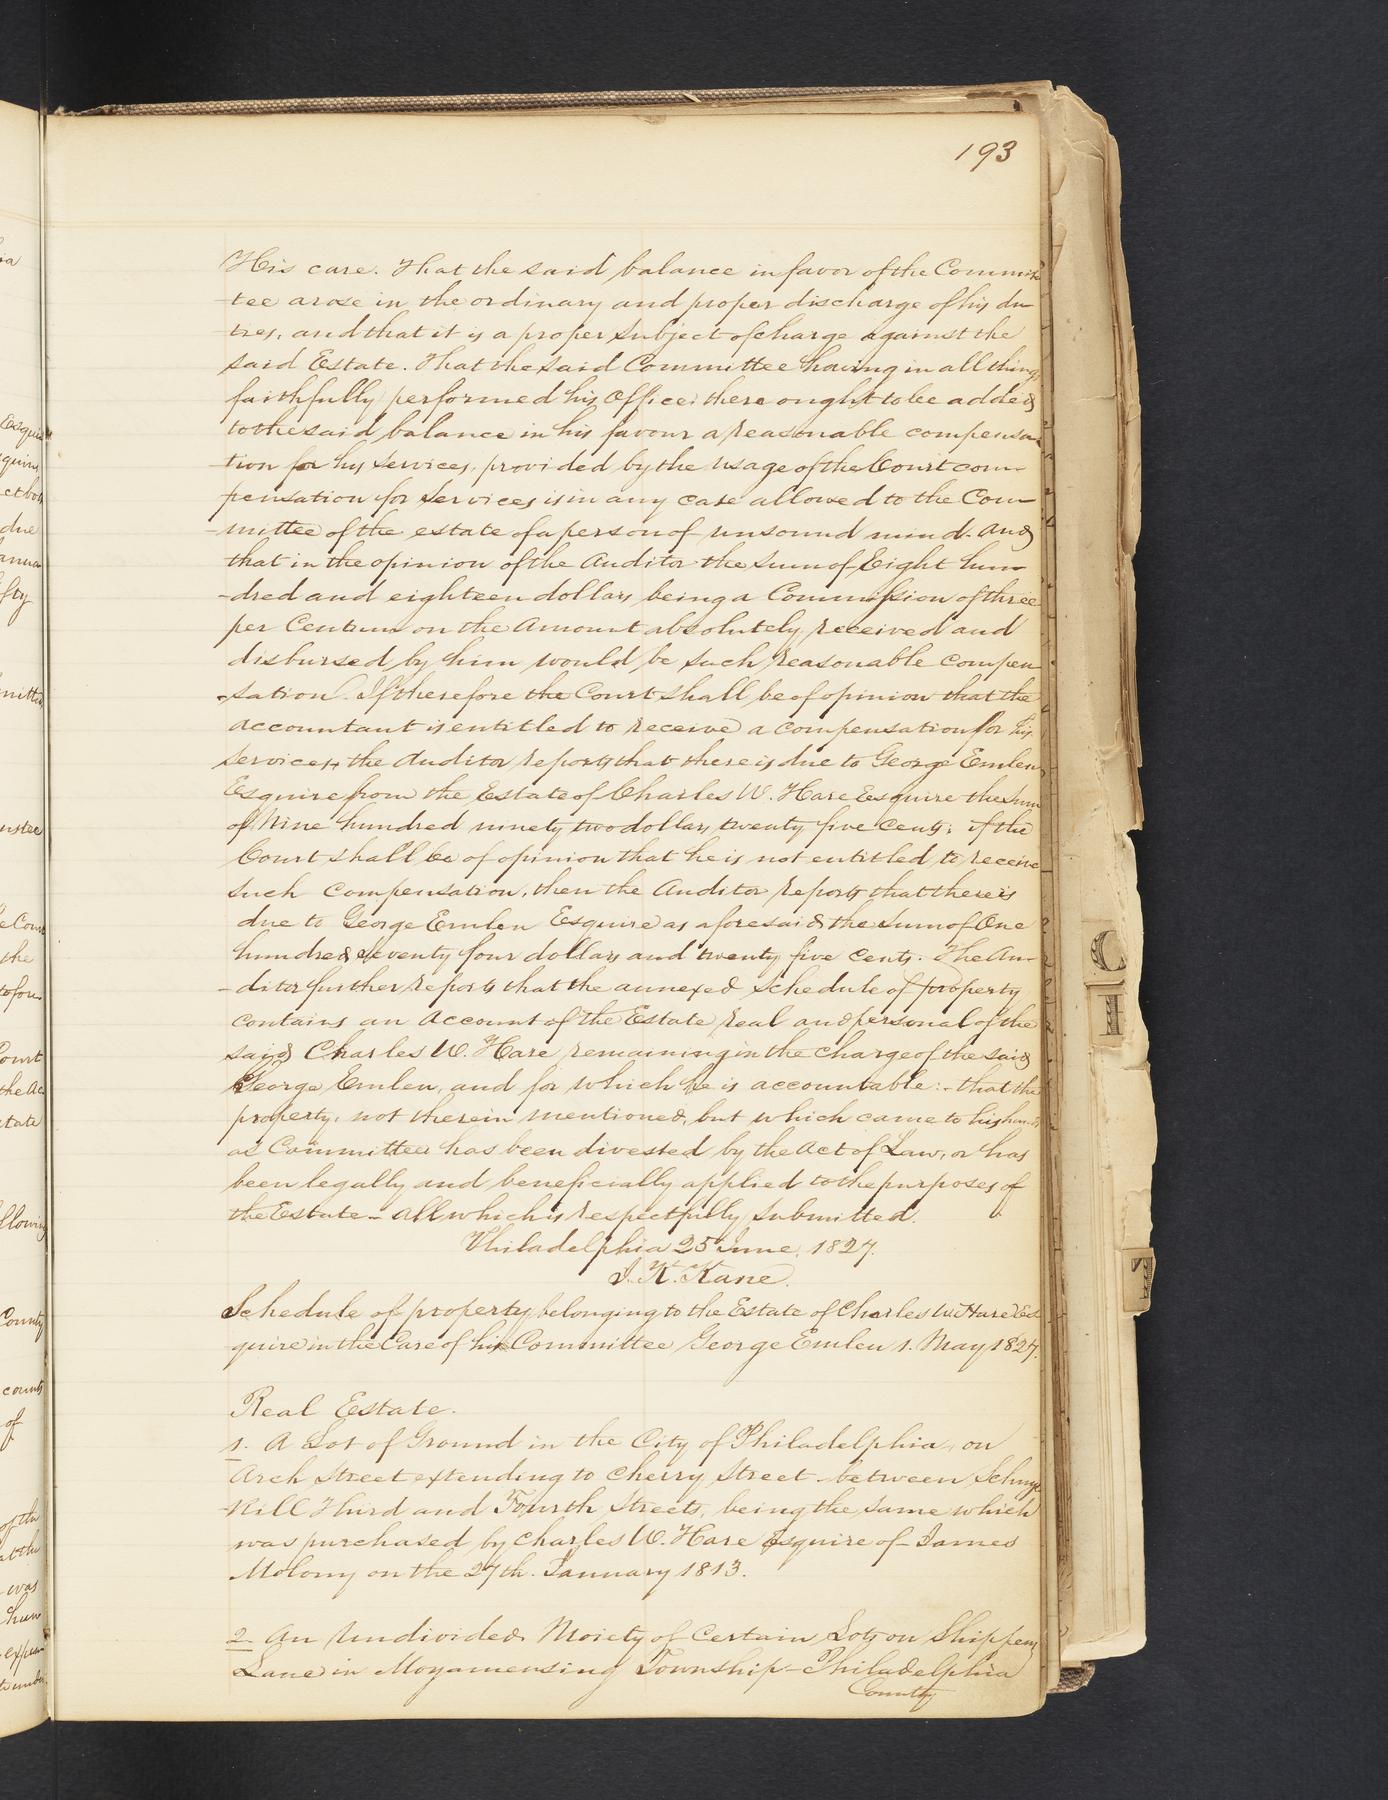 193
His care. That the said balance in favor of the Commit
tee arose in the ordinary and proper discharge of his du
ties, and that it is a proper subject of charge against the
said Estate. That the said Committee having in all things
faithfully performed his Office: there ought to be added
to the said balance in his favour a reasonable compensa
tion for his services, provided by the usage of the Court com-
pensation for services is in any case allowed to the Com-
-mittee of the estate of a person of unsound mind. And
that in the opinion of the Auditor the sum of Eight hun-
-dred and eighteen dollars being a Commission of three
per Centum on the Amount absolutely received and
disbursed by him would be such reasonable compen
-sation. If therefore the Court shall be of opinion that the
accountant is entitled to receive a compensation for his
services, the Auditor reports that there is due to George Emlen
Esquire from the Estate of Charles W. Hare Esquire the Sum
of Nine hundred ninety two dollars twenty five Cents; if the
Court shall be of opinion that he is not entitled to receive
such compensation, then the Auditor reports that there is
due to George Emlen Esquire as aforesaid the sum of One
hundred seventy four dollars and twenty five cents. The Au-
-ditor further reports that the annexed Schedule of property
contains an Account of the Estate real and personal of the
said Charles W. Hare remaining in the charge of the said
George Emlen, and for which he is accountable:- that the
property, not therein mentioned, but which came to his hands
as Committee has been divested by the Act of Law, or has
been legally and beneficially applied to the purposes of
the Estate - All which is respectfully submitted.
Philadelphia 25 June, 1827.
J. K. Kane.
Schedule of property belonging to the Estate of Charles W. Hare Es
quire in the Care of his Committee George Emlen 1. May 1827.
Real Estate.
1. A Lot of Ground in the City of Philadelphia, on
Arch Street extending to Cherry Street - between Schuyl
Kill Third and Fourth Streets, being the same which
was purchased by Charles W. Hare Esquire of James
Molony on the 27th. January 1813.
2 An Undivided Moiety of Certain Lots on Shippens
Lane in Moyamensing Township - Philadelphia
County